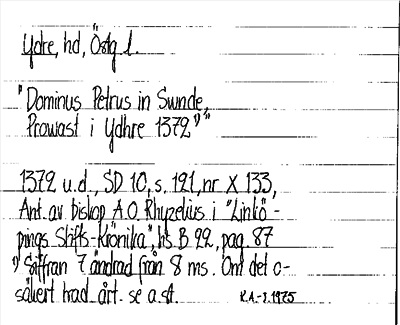 Ydre, hd, Östg l.
"Dominus Petrus in Swnde,
Prowast i Ydhre 1372¹)"
1372 u.d., SD 10, s. 121, nr X 133,
Ant. av biskop A.O. Rhyzelius i "Linkö-
pings Stifts-Krönika", hs. B 22, pag. 87
¹) Siffran 7 ändrad från 8 ms. Om det o-
säkert trad. årt. se a.st.
K.A.-J. 1975